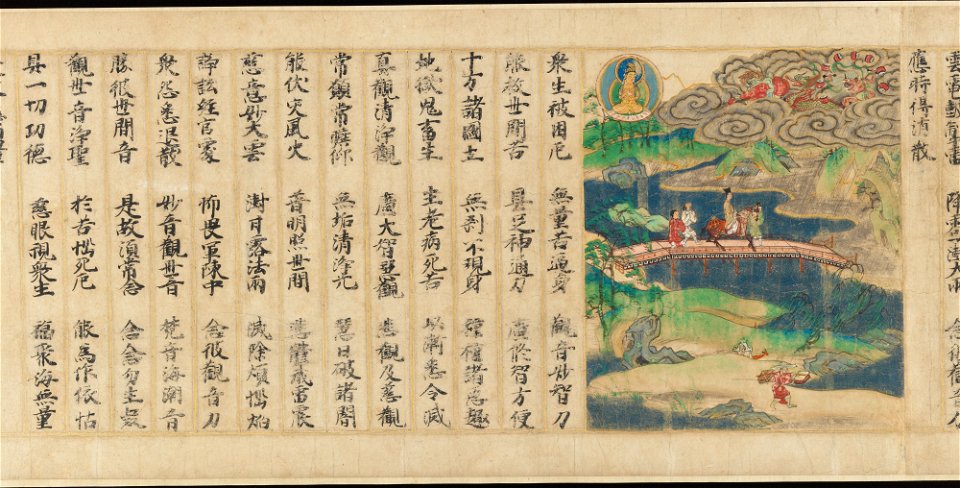 雲雷鼓掣電 降雹澍大雨 念彼觀音力
應時得消散
衆生被困厄 無量苦逼身 觀音妙智力
能救世間苦 具足神通力 廣修智方便
十方諸國土 無刹不現身 種種諸惡趣
地獄鬼畜生 生老病死苦 以漸悉令滅
真觀清淨觀 廣大智慧觀 悲觀及慈觀
常願常瞻仰 無垢清淨光 慧日破諸闇
能伏災風火 普明照世間 悲體戒雷震
慈意妙大雲 澍甘露法雨 滅除煩惱焰
諍訟經官處 怖畏軍陣中 念彼觀音力
衆怨悉退散 妙音觀世音 梵音海潮音
勝彼世間音 是故須常念 念念勿生疑
觀世音淨聖 於苦惱死厄 能爲作依怙
具一切功德 慈眼視衆生 福聚海無量